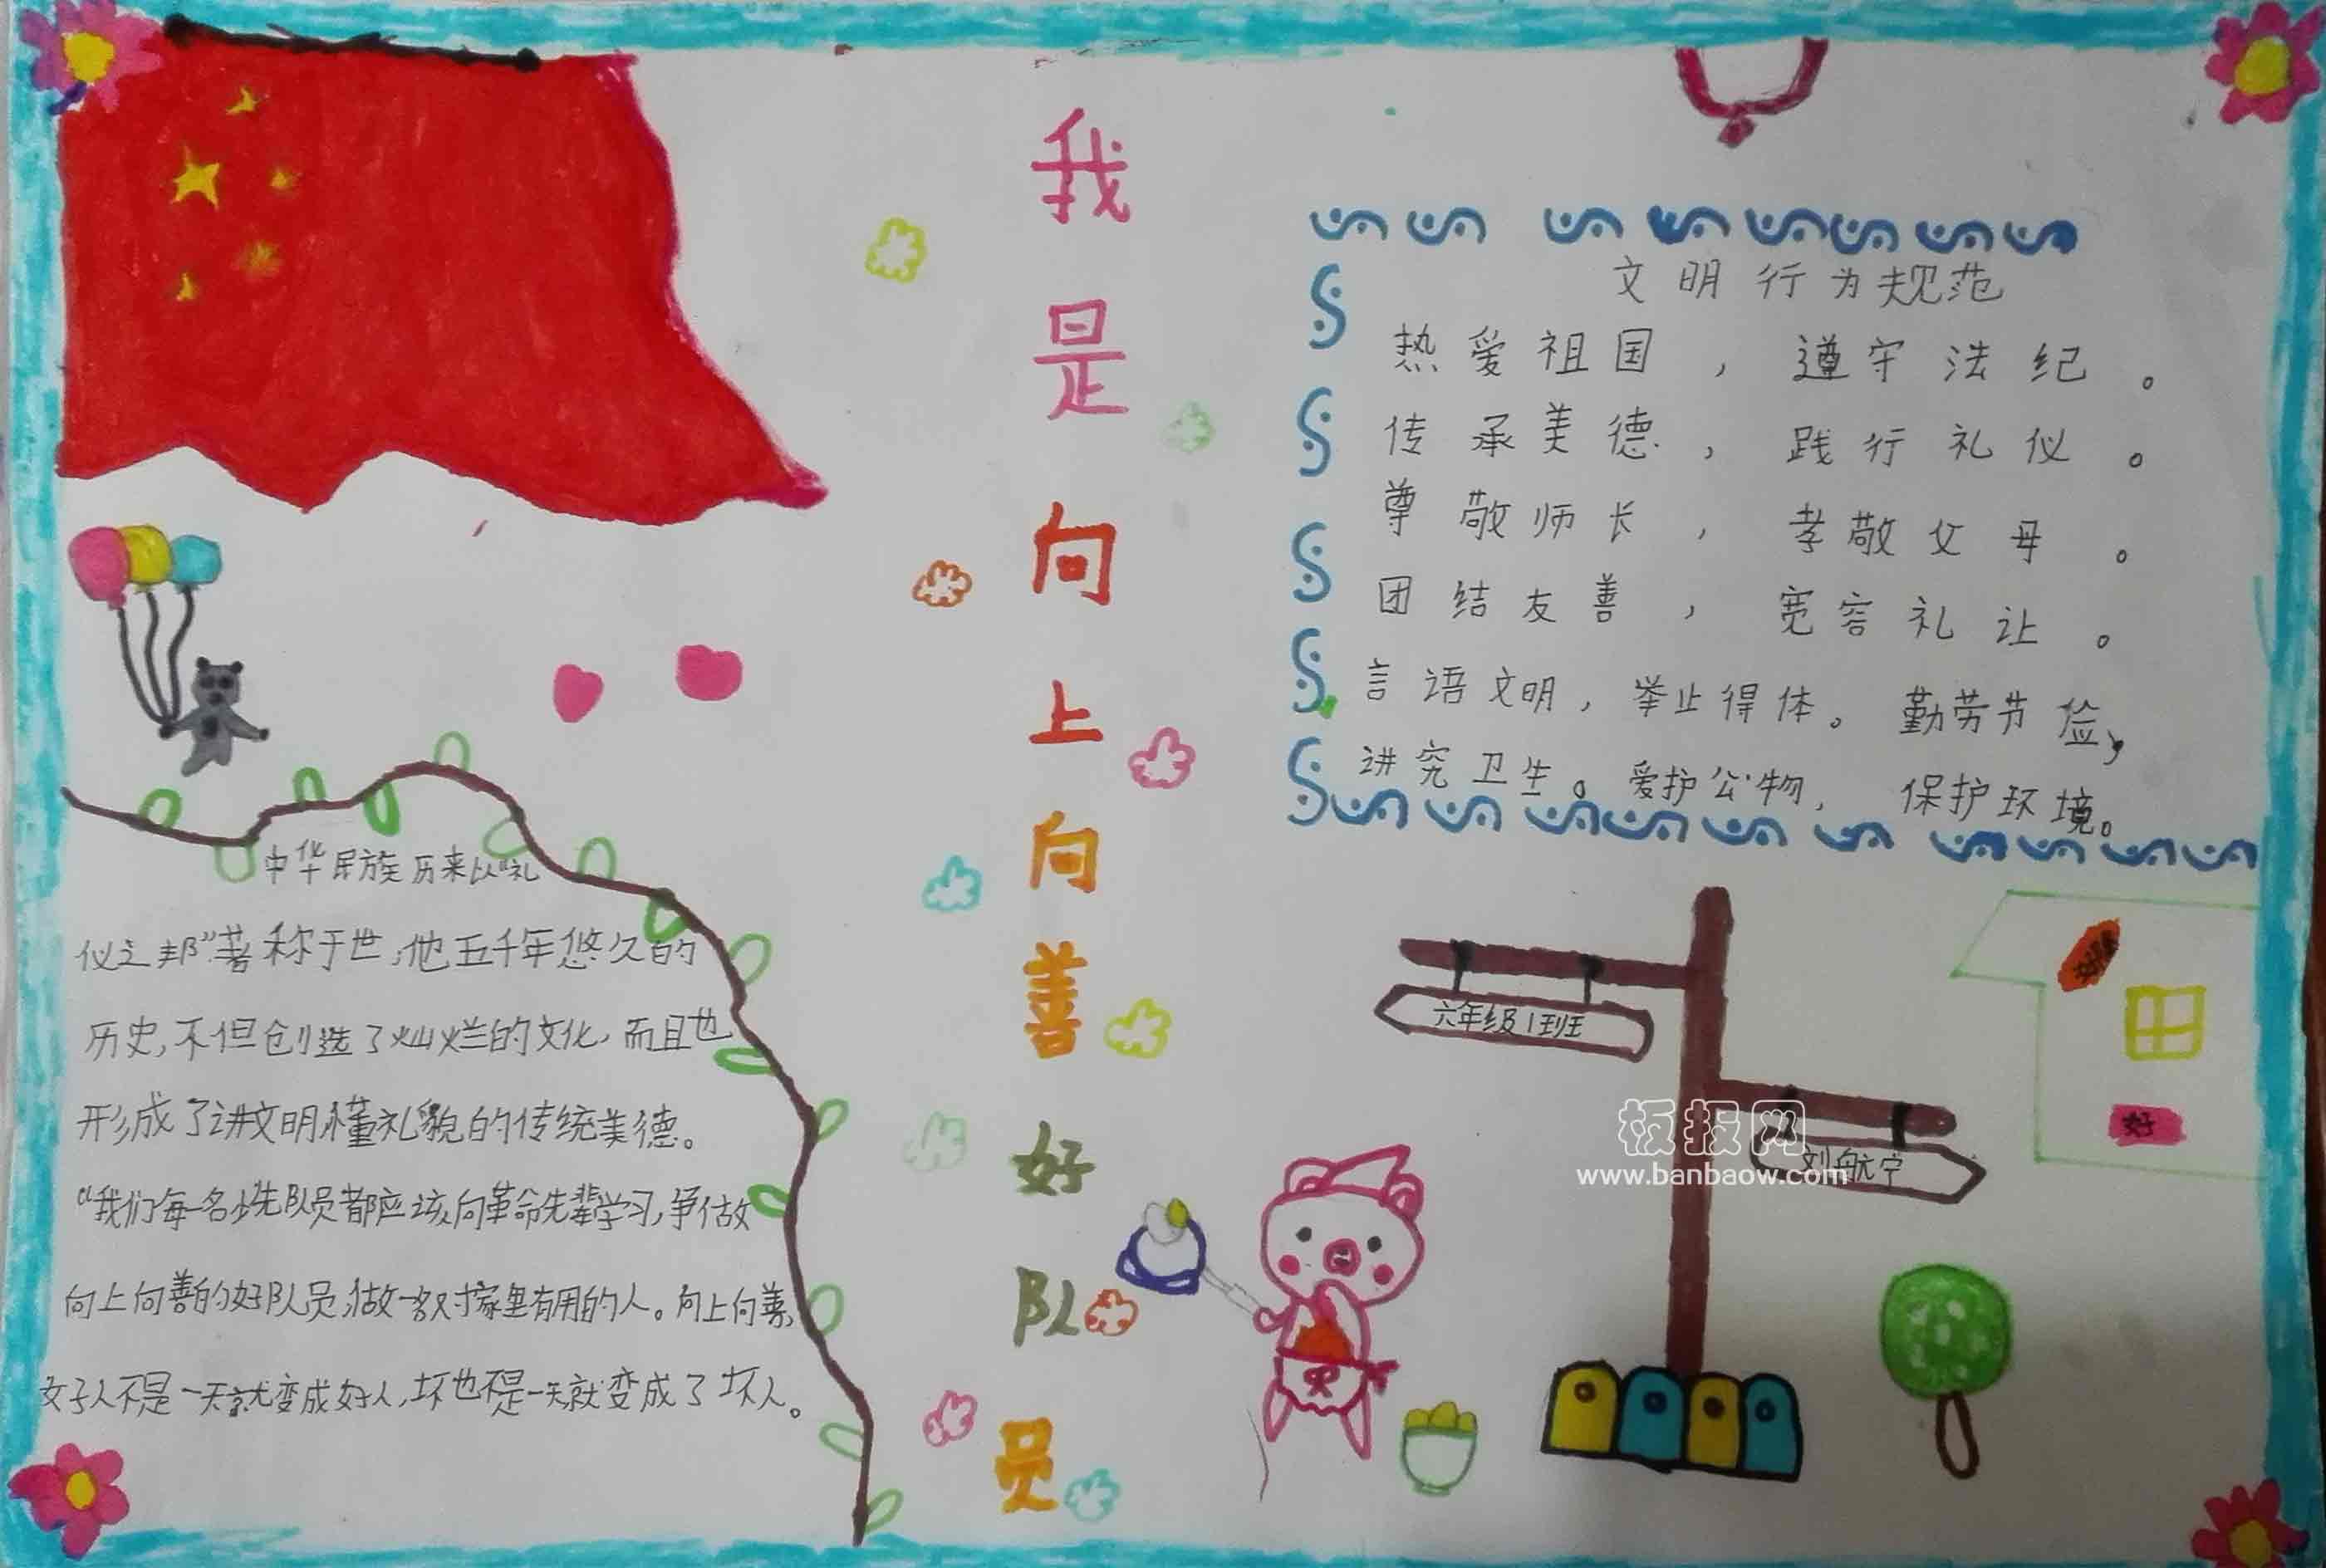 我是向上向善好队员
文明行为规范
热爱祖国，遵守法纪。
传承美德，践行礼仪。
尊敬师长，孝敬父母。
团结友善，宽容礼让。
言语文明，举止得体。勤劳节俭，
讲究卫生。爱护公物，保护环境。
中华民族历来以“礼
仪之邦”著称于世，他五千年悠久的
历史，不但创造了灿烂的文化，而且也
形成了讲文明懂礼貌的传统美德。
“我们每一名少先队员都应该向革命先辈学习，争做
向上向善的好队员，做一名对家里有用的人。向上向善，
好人不是一天就变成好人，坏也不是一天就变成了坏人。
六年级1班
刘航宁
好
板报网
www.banbaow.com